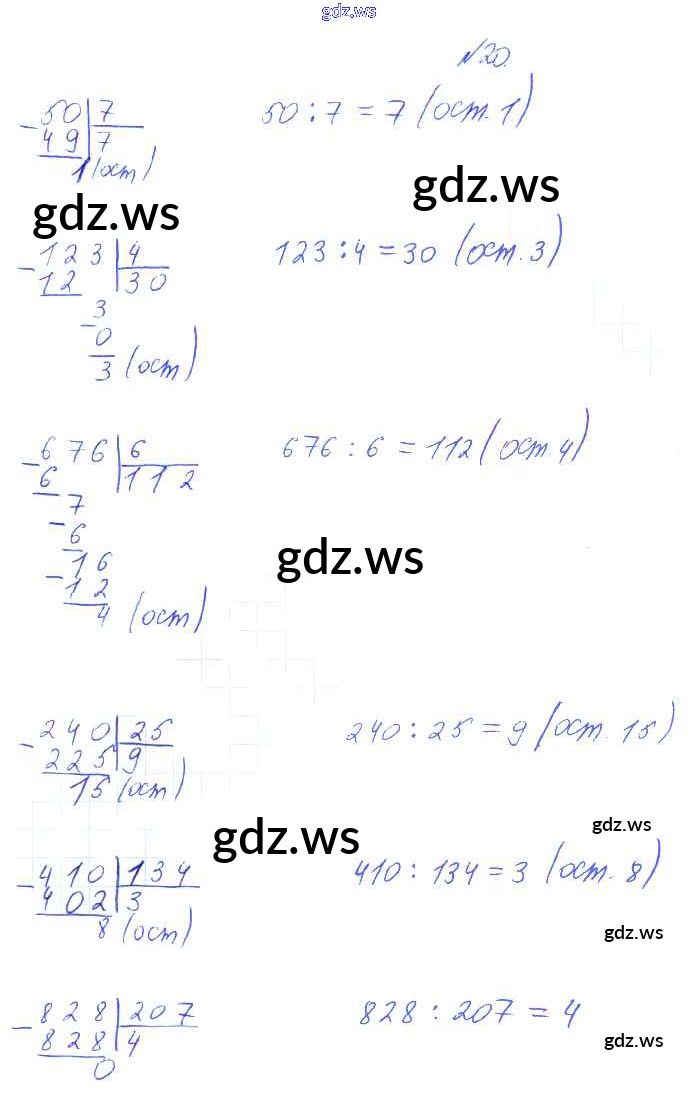 gdz.ws
№20.
50 7 50 : 7 = 7 (ост. 1)
- 49 7
1 (ост)
gdz.ws
gdz.ws
123 4 123 : 4 = 30 (ост. 3)
- 12 30
3
- 0
3 (ост)
676 6 676 : 6 = 112 (ост. 4)
- 6 112
7
- 6
16
- 12
gdz.ws
4 (ост)
240 25 240 : 25 = 9 (ост. 15)
- 225 9
15 (ост)
gdz.ws
gdz.ws
410 134 410 : 134 = 3 (ост. 8)
- 402 3
8 (ост)
gdz.ws
828 207 828 : 207 = 4
- 828 4
gdz.ws
0